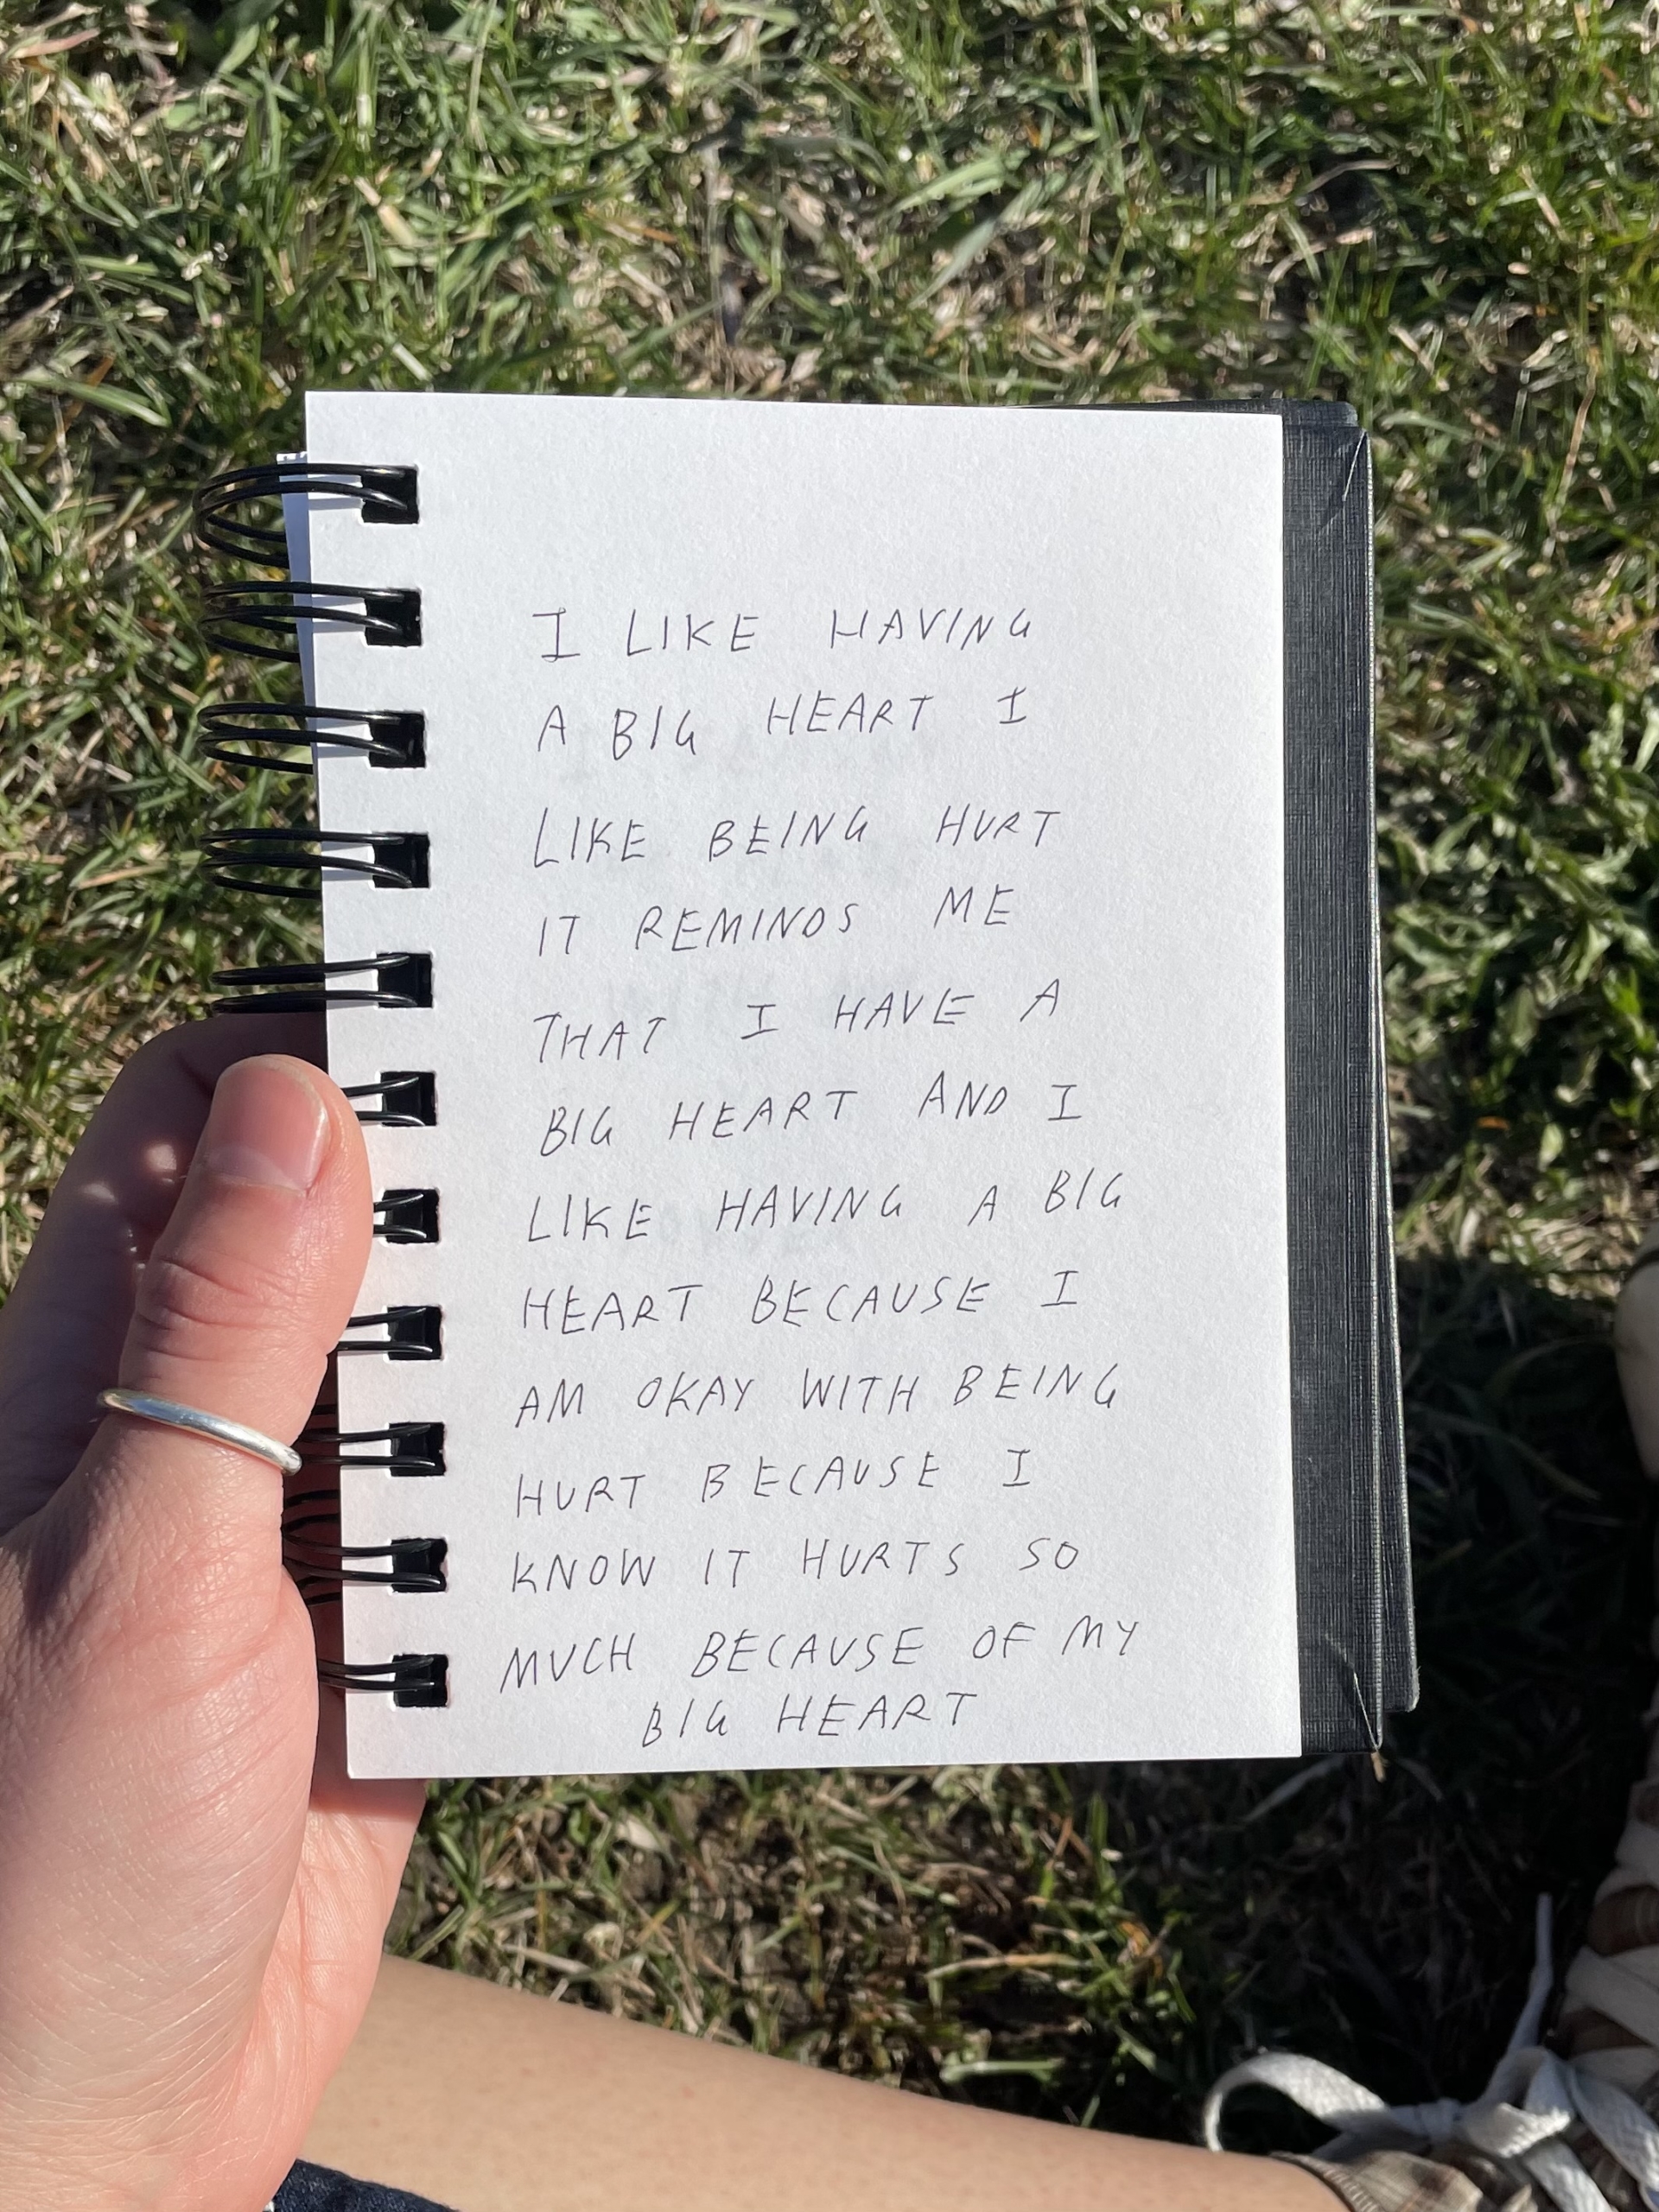 I LIKE HAVING
A BIG HEART I
LIKE BEING HURT
IT REMINDS ME
THAT I HAVE A
BIG HEART AND I
LIKE HAVING A BIG
HEART BECAUSE I
AM OKAY WITH BEING
HURT BECAUSE I
KNOW IT HURTS SO
MUCH BECAUSE OF MY
BIG HEART